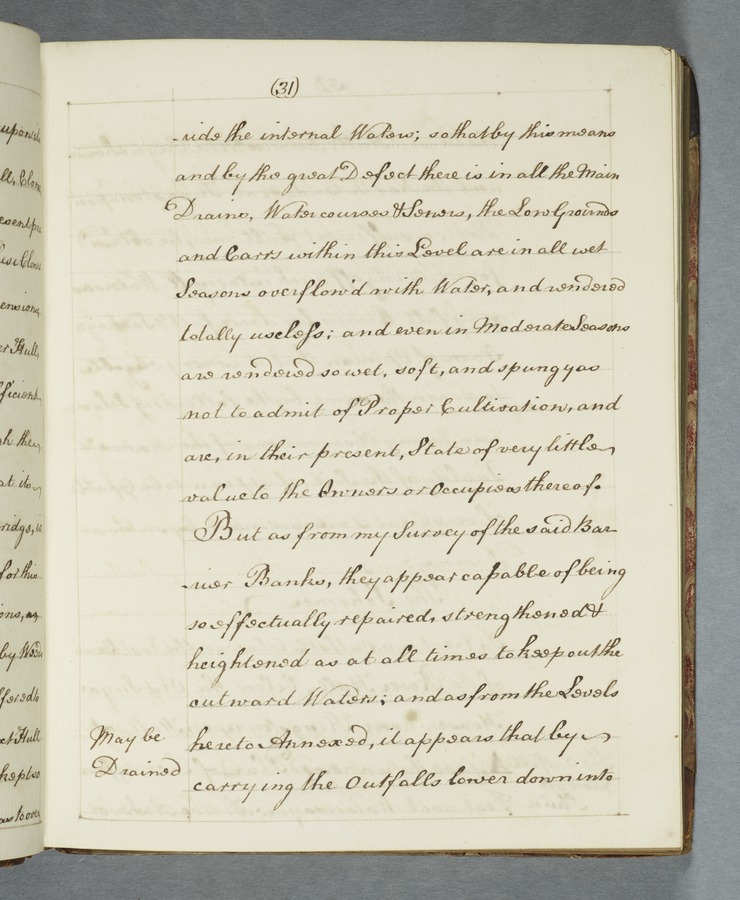 (31)
-vide the internal Waters; so that by this means
and by the great Defect there is in all the Main
Drains, Watercourses & Sewers, the Low Grounds
and Carrs within this Level are in all wet
Seasons overflow'd with Water, and rendered
totally useless; and even in Moderate Seasons
are rendered so wet, soft, and spungy as
not to admit of Proper Cultivation, and
are, in their present, State of very little
value to the Owners or Occupiers thereof.
But as from my Survey of the said Bar
-rier Banks, they appear capable of being
so effectually repaired, strengthened &
heightened as at all times to keep out the
outward Waters; and as from the Levels
May be
Drained
hereto Annexed, it appears that by
carrying the Outfalls lower down into